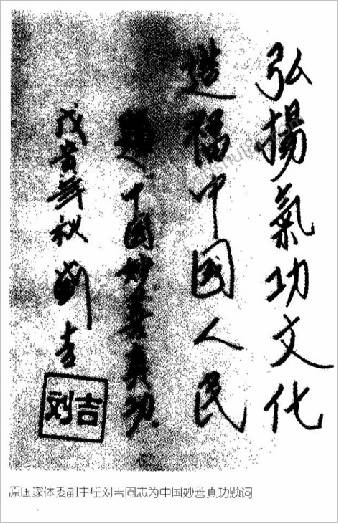 弘揚氣功文化
造福中國人民
題中國妙善真功
戊寅年秋 劉吉
刘吉
原国家体委副主任刘吉同志为中国妙善真功题词